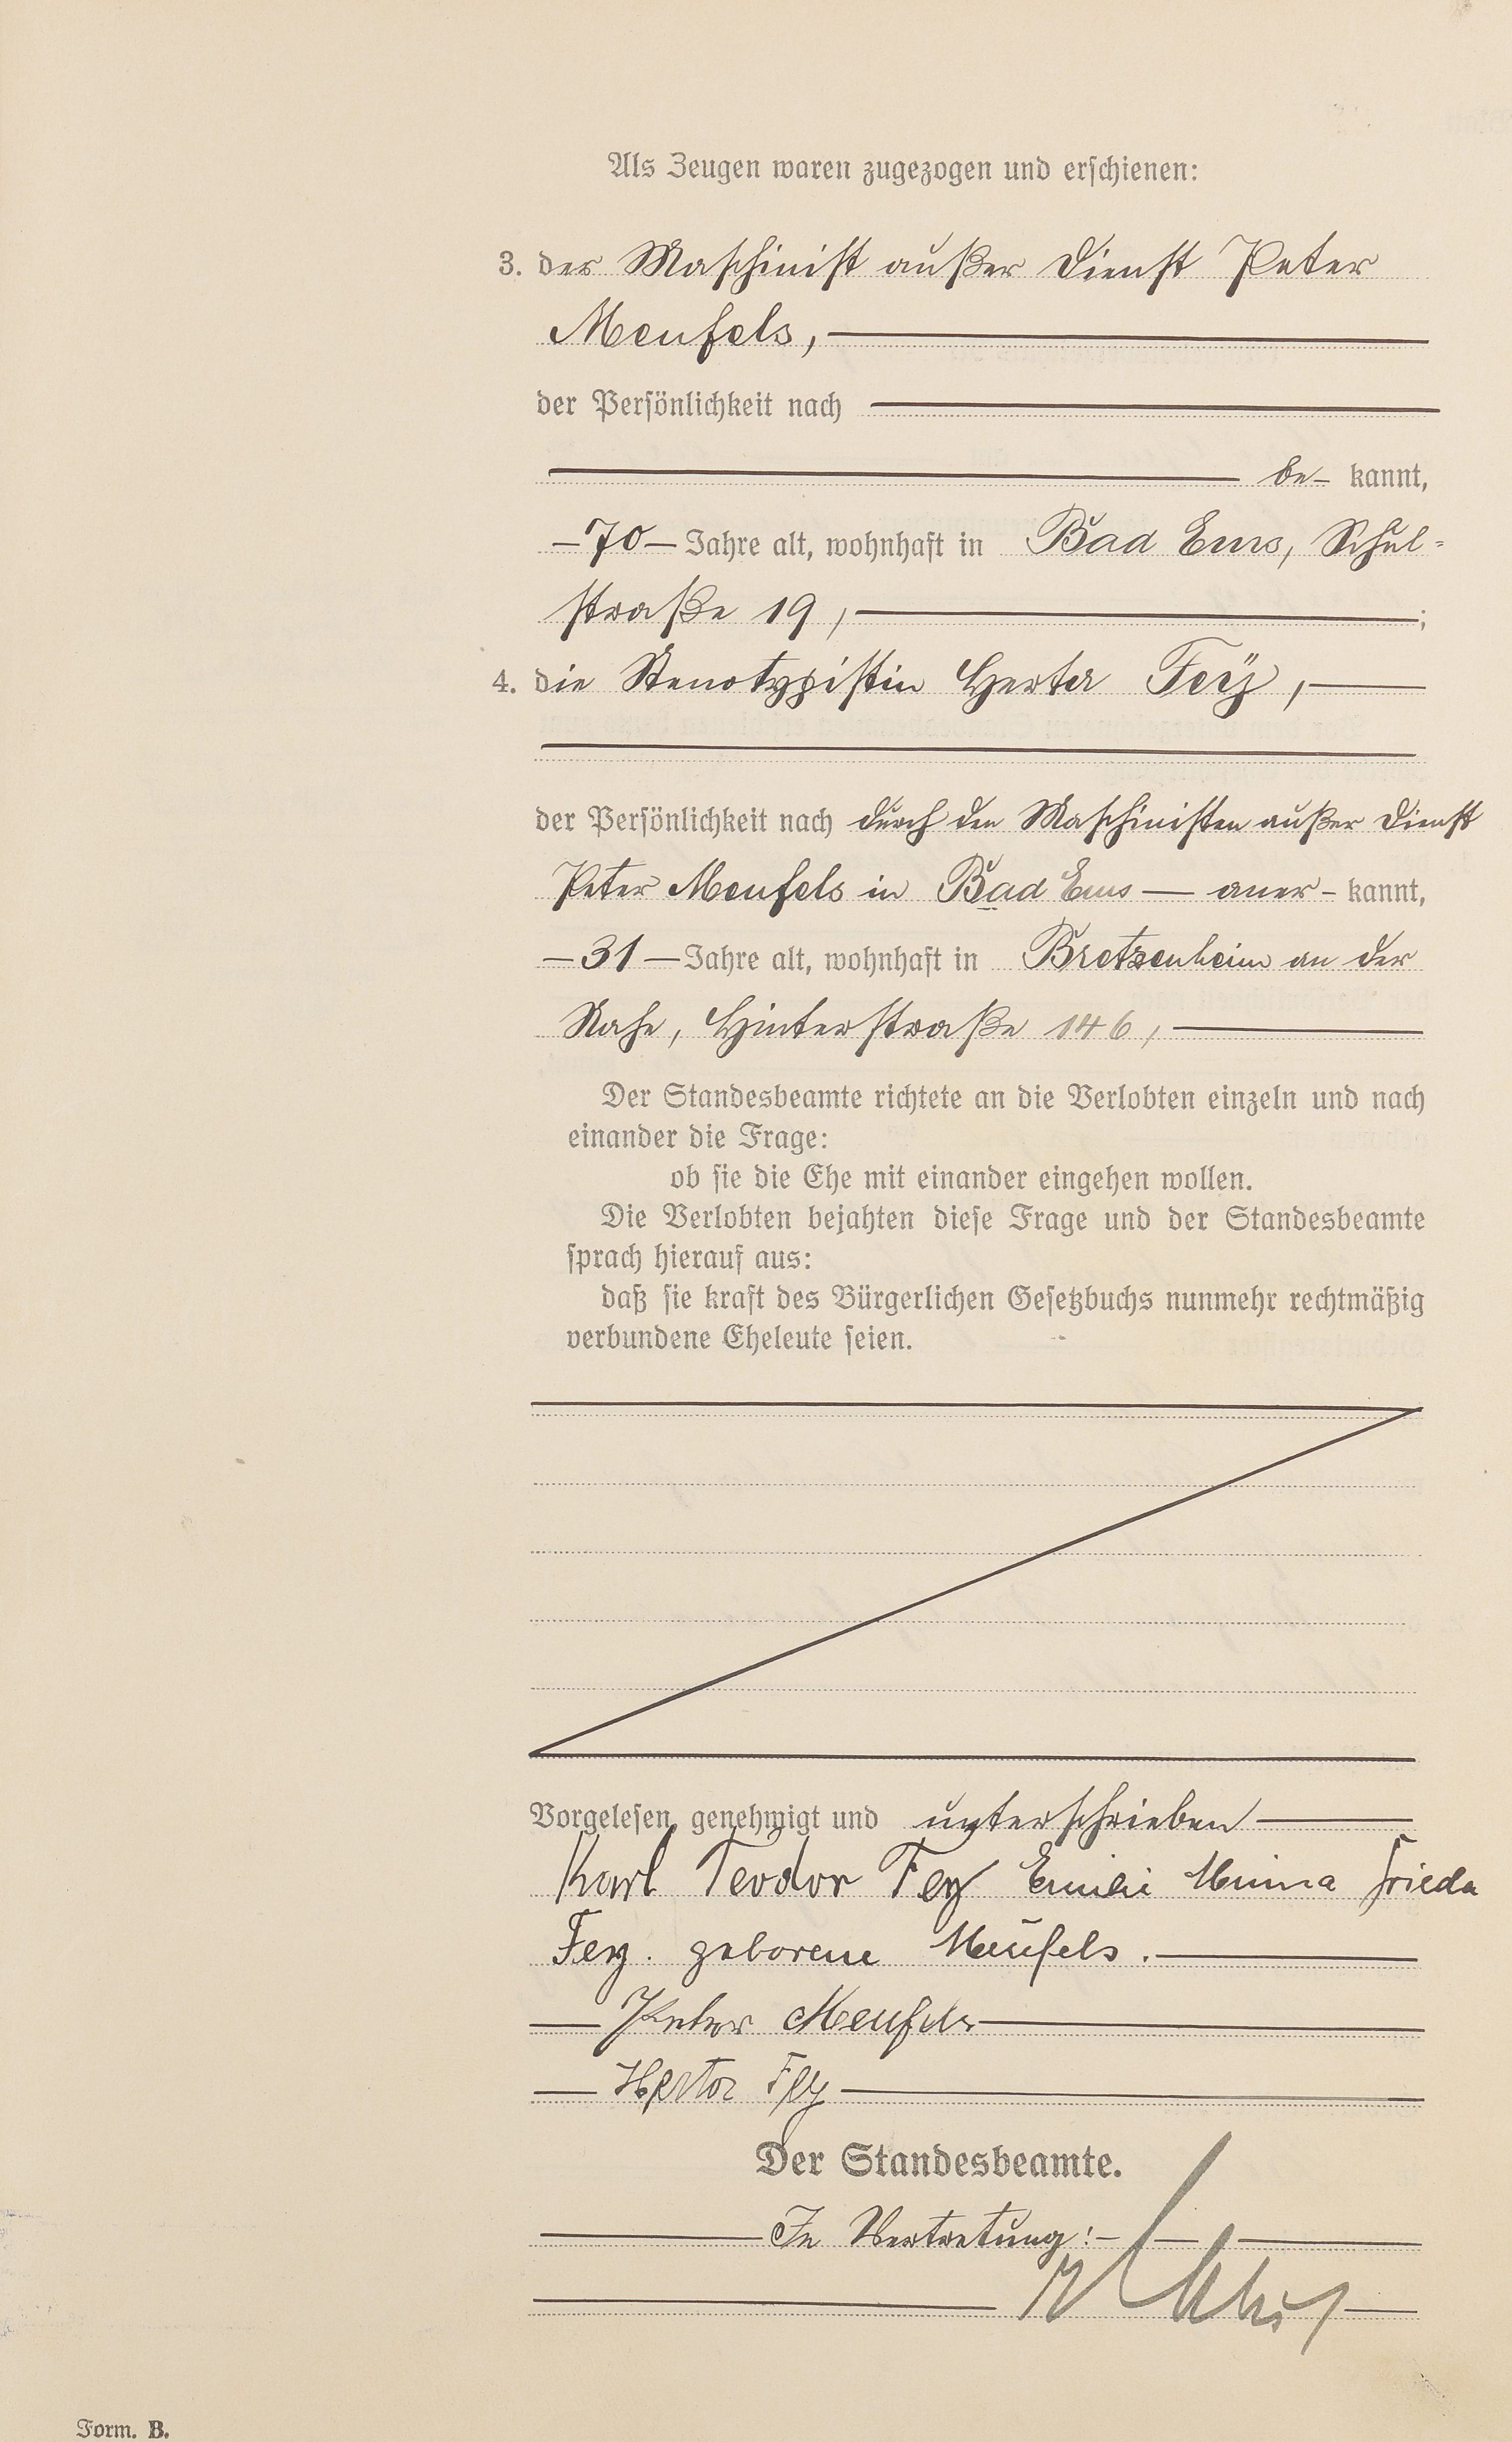 Als Zeugen waren zugezogen und erschienen:
3. der Maschinist außer Dienst Peter
Meufels,
der Persönlichkeit nach
be- kannt,
-70- Jahre alt, wohnhaft in Bad Ems, Schul-
straße 19, ;
4. die Stenotypistin Herta Feÿ,
der Persönlichkeit nach durch den Maschinisten außer Dienst
Peter Meufels in Bad Ems — aner- kannt,
-31- Jahre alt, wohnhaft in Bretzenheim an der
Nahe, Hinterstraße 146,
Der Standesbeamte richtete an die Verlobten einzeln und nach
einander die Frage:
ob sie die Ehe mit einander eingehen wollen.
Die Verlobten bejahten diese Frage und der Standesbeamte
sprach hierauf aus:
daß sie kraft des Bürgerlichen Gesetzbuchs nunmehr rechtmäßig
verbundene Eheleute seien.
Vorgelesen, genehmigt und unterschrieben
Karl Teodor Fey Emilie Minna Frieda
Fey. geborene Meufels.
Peter Meufels
Herta Fey
Der Standesbeamte.
In Vertretung:
Form. B.